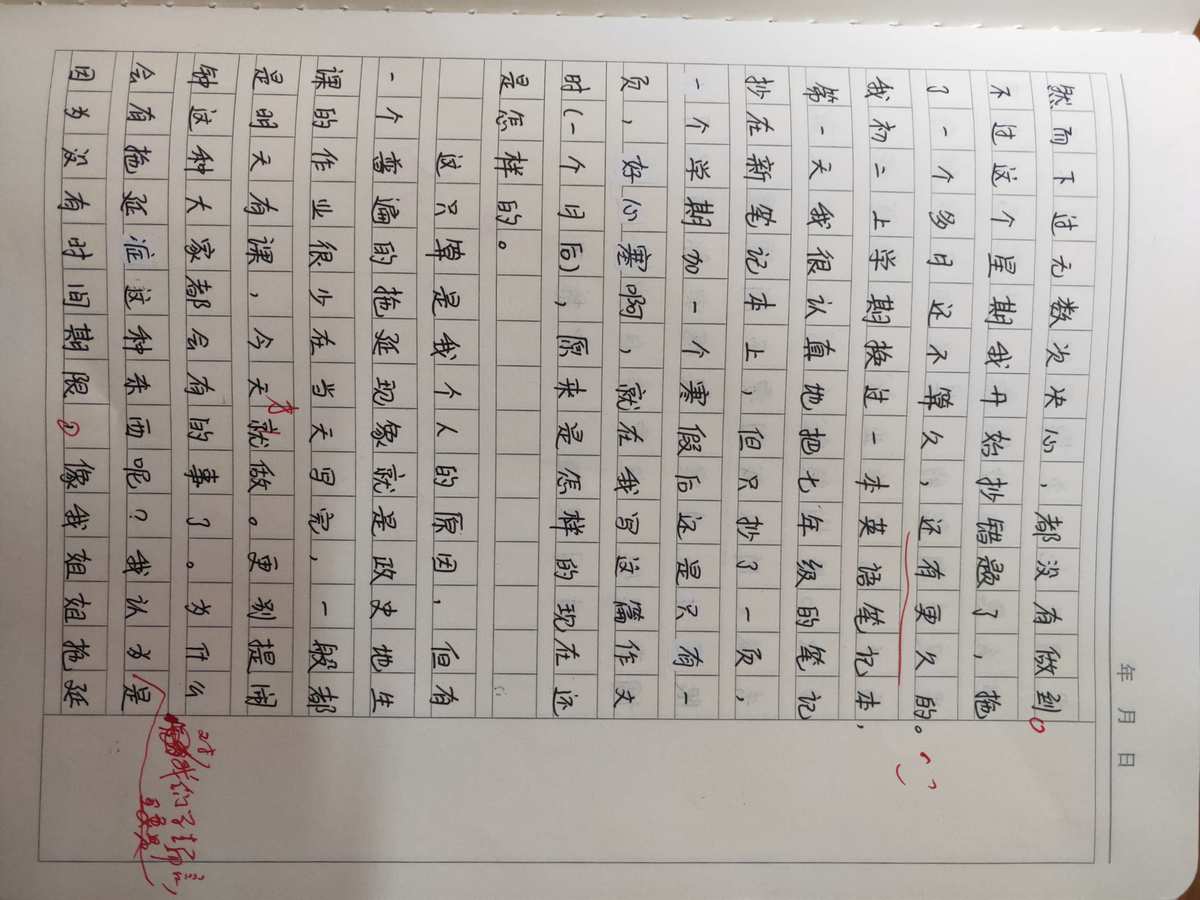 年 月 日
然而下过无数次决心，都没有做到。
不过这个星期我开始抄错题了，拖
了一个多月还不算久，还有更久的。
我初二上学期换过一本英语笔记本，
第一天我很认真地把七年级的笔记
抄在新笔记本上，但只抄了一页，
一个学期加一个寒假后还是只有一
页，好心塞啊，就在我写这篇作文
时(一个月后)，原来是怎样的现在还
是怎样的。
这只算是我个人的原因，但有
一个普遍的拖延现象就是政史地生
课的作业很少在当天写完，一般都
是明天有课，今天就做。更别提闹
才
钟这种大家都会有的事了。为什么
会有拖延症这种东西呢？我认为是
因为没有时间期限。像我姐姐拖延
对我们学生而言，